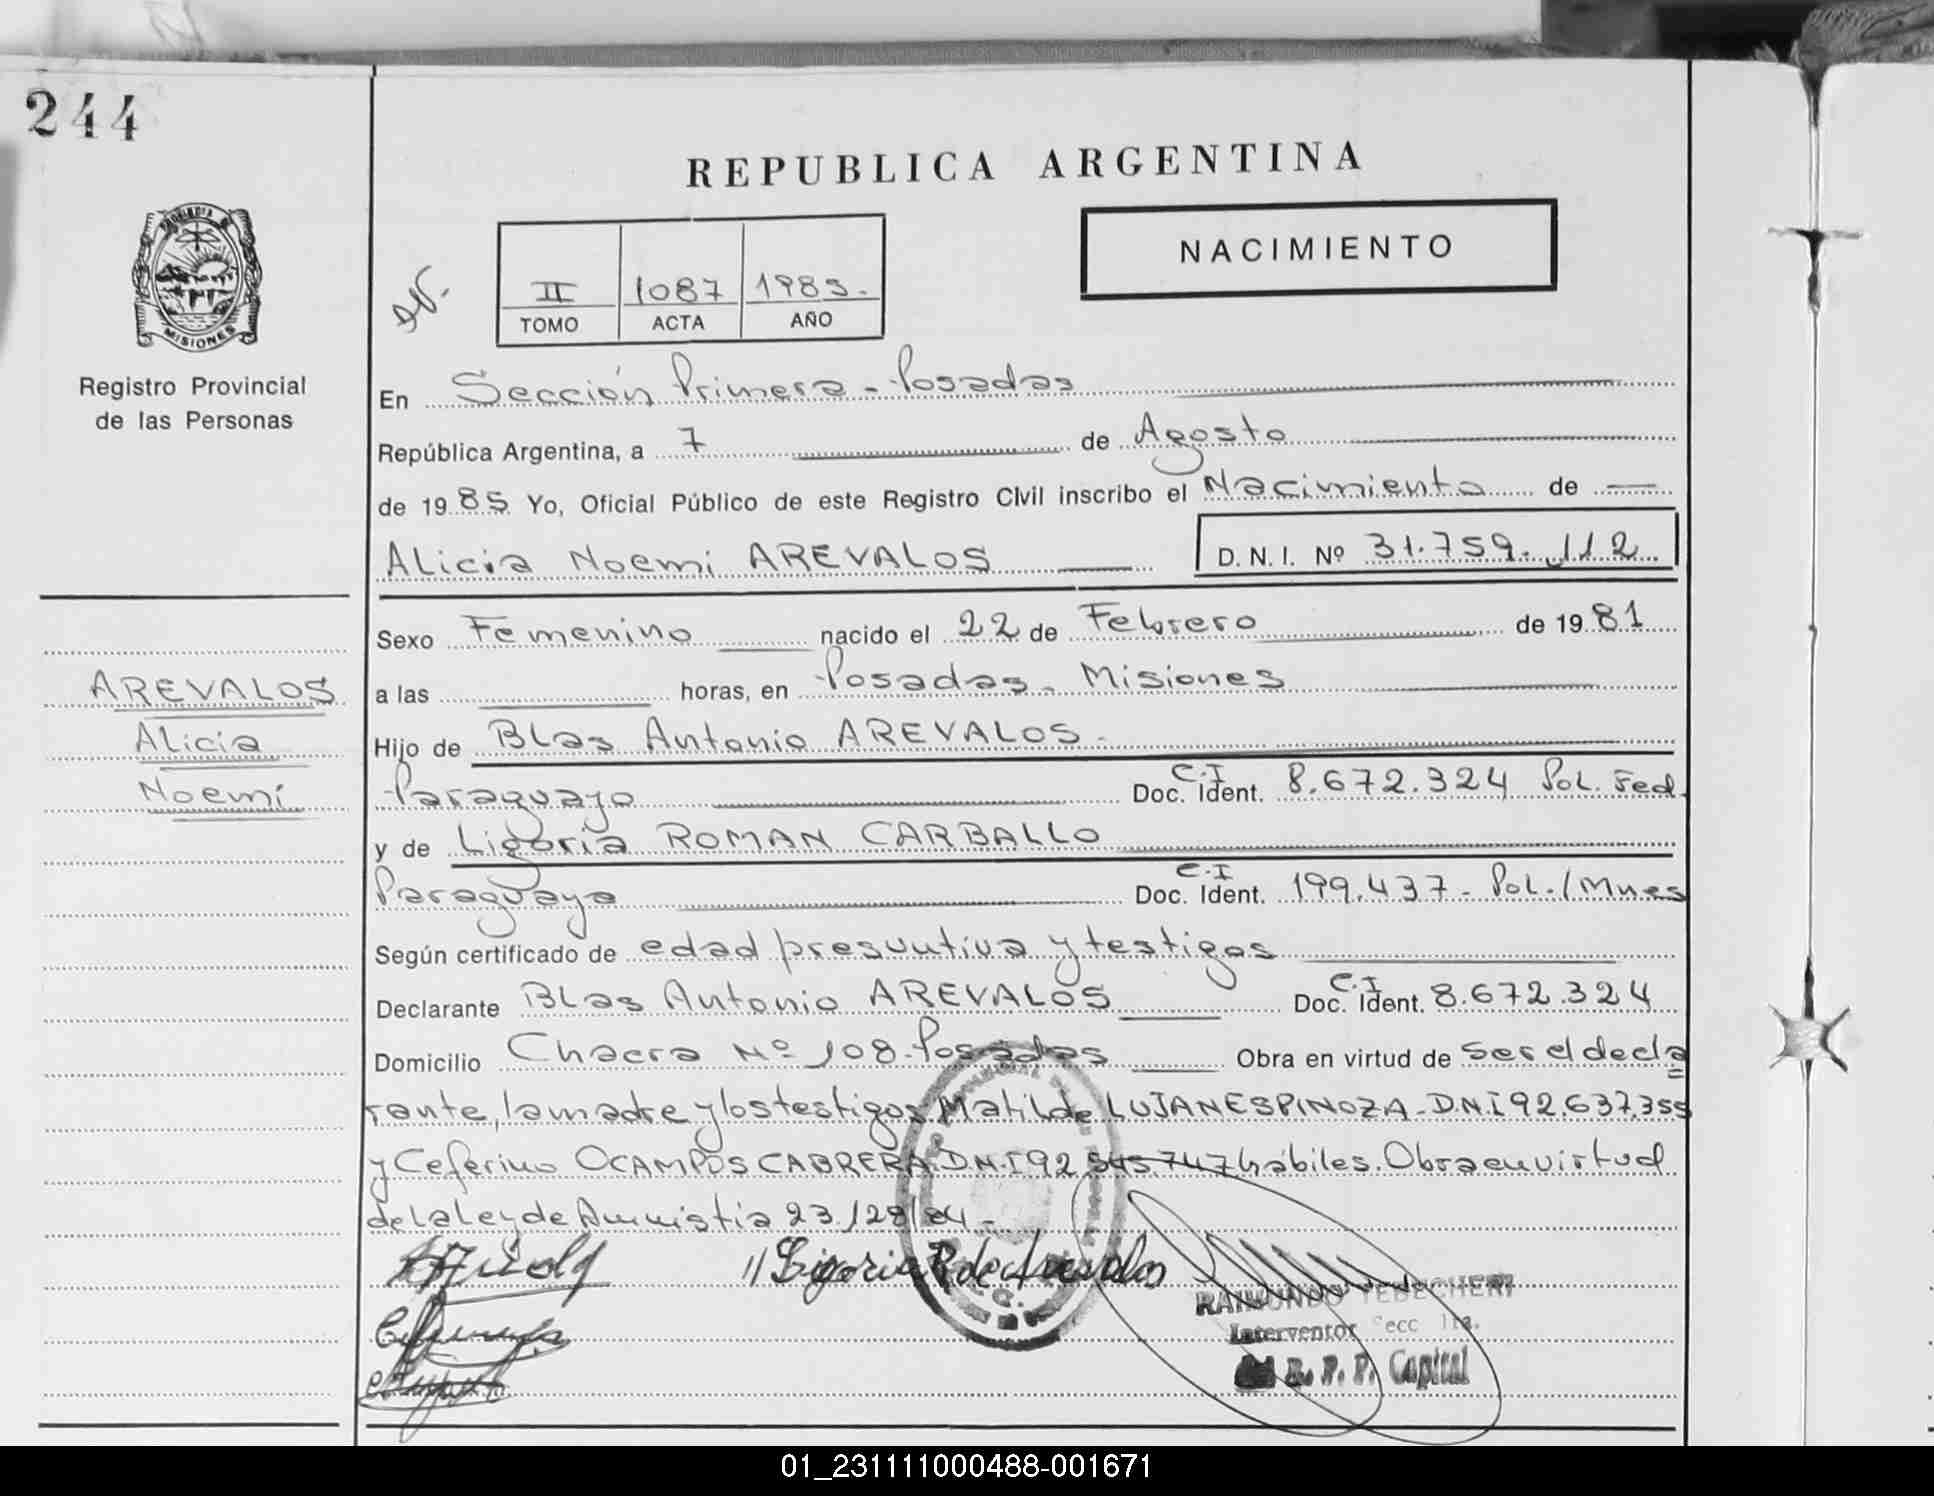 244
REPUBLICA ARGENTINA
NACIMIENTO
PROVINCIA DE
MISIONES
Registro Provincial
de las Personas
II 1087 1985.
TOMO ACTA AÑO
En Sección Primera - Posadas
República Argentina, a 7 de Agosto
de 1985 Yo, Oficial Público de este Registro Civil inscribo el Nacimiento de
Alicia Noemi AREVALOS D. N. I. Nº 31.759.112
Sexo Femenino nacido el 22 de Febrero de 1981
AREVALOS
Alicia
Noemi
a las horas, en Posadas - Misiones
Hijo de Blas Antonio AREVALOS.
Paraguayo Doc. Ident. C.I 8.672.324 Pol. Fed.
y de Ligoria ROMAN CARBALLO
Paraguaya Doc. Ident. C.I 199.437 - Pol./Mnes
Según certificado de edad presuutiva y testigos
Declarante Blas Antonio AREVALOS Doc. Ident. C.I 8.672.324
Domicilio Chacra Nº 108 - Posadas Obra en virtud de ser el decla
rante, la madre y los testigos Matilde LUJAN ESPINOZA - D.N.I 92.637.355
y Ceferino OCAMPOS CABRERA D.N.I 92.545.747 hábiles. Obra en virtud
de la ley de Amnistia 23/28/84 -
Ligoria R de Arevalos
RAIMUNDO TEDECHERI
Interventor Secc 1ra.
R. P. P. Capital
01_231111000488-001671